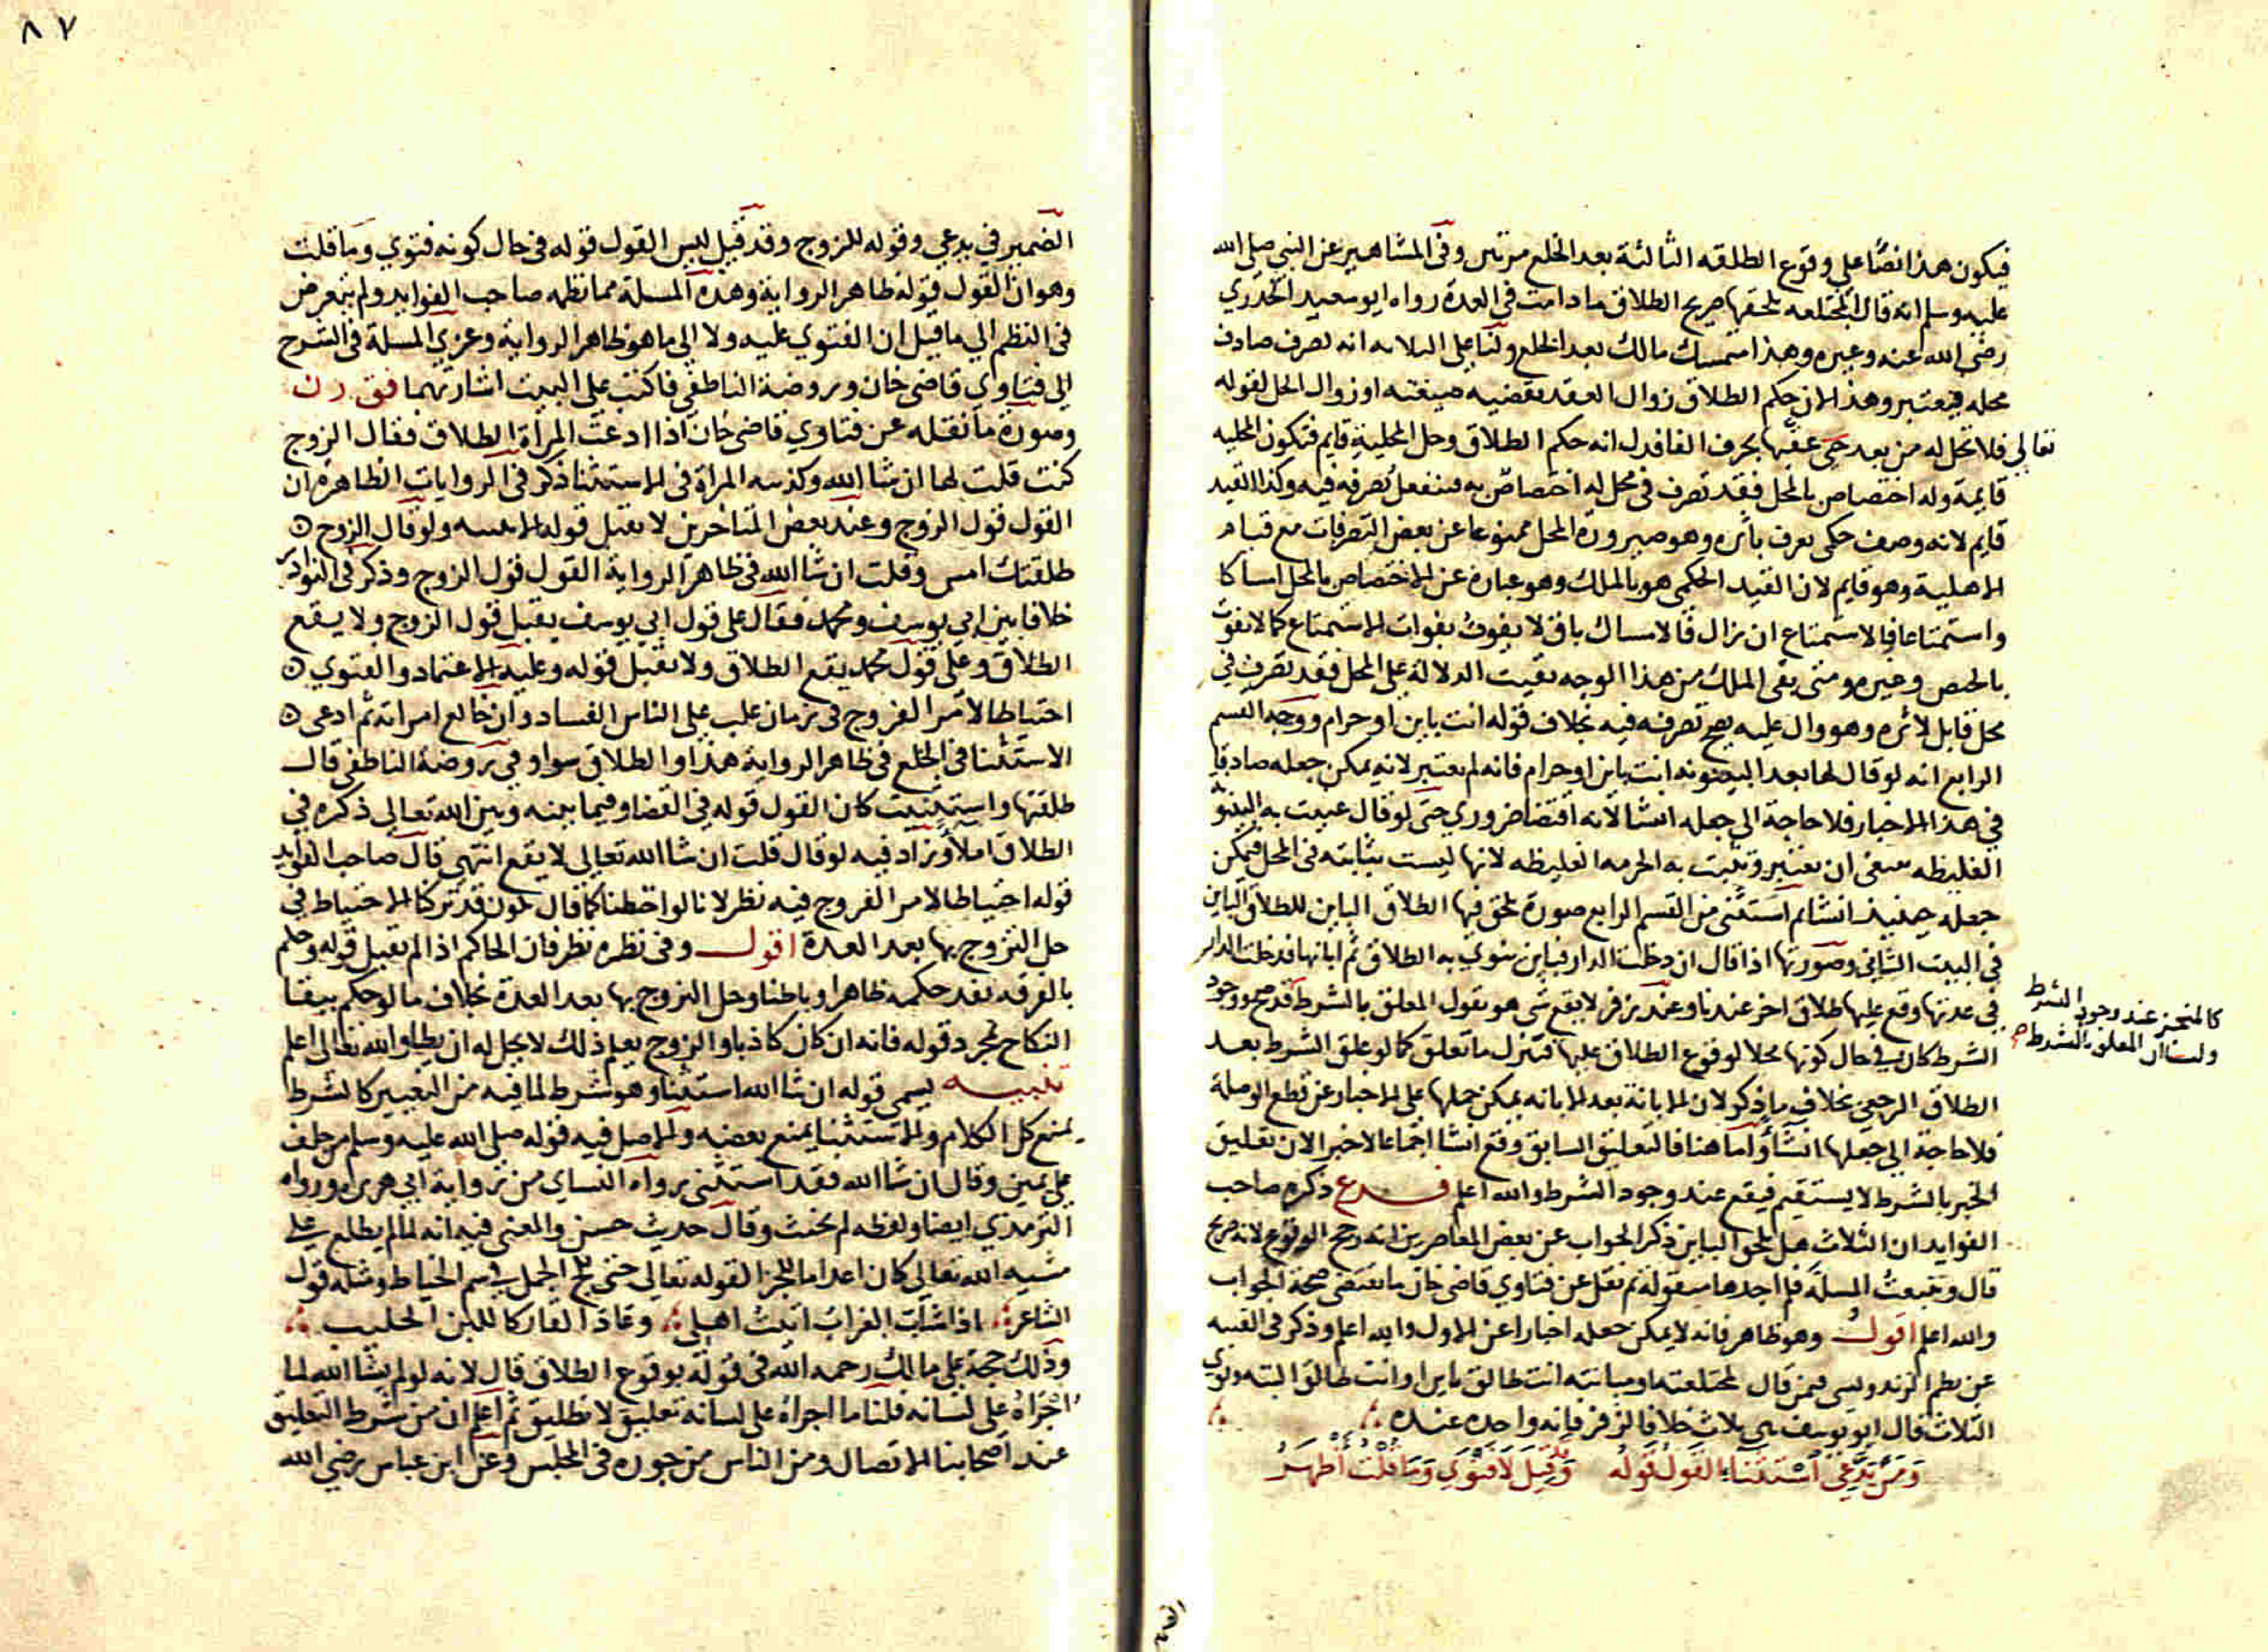 فيكون هذا نصا على وقوع الطلقه الثالثة بعد الخلع مرتين وفي المشاهير عن النبي صلى الله
عليه وسلم انه قال المختلعه يلحقها صريح الطلاق ما دامت في العدة رواه ابو سعيد الخدري
رضي الله عنه وغيره وهذا متمسك مالك بعد الخلع ولنا على انه تصرف صادف
محله فيعتبر وهذا لان حكم الطلاق زوال العقد بقضيه صيغته او زوال الحل لقوله
تعالى فلا تحل له من بعد حتى عقبها بحرف الفا فدل انه حكم الطلاق وحل المحلية قايم فتكون المحليه
قايمة وله اختصاص بالمحل فقد تصرف في محل له اختصاص به فينفعل تصرفه فيه وكذا القيد
قايم لانه وصف حكمي يعرف باثره وهو صيرورة المحل ممنوعا عن بعض التصرفات مع قيام
الاهلية وهو قايم لان القيد الحكمي هو بالملك وهو عبارة عن الاختصاص بالمحل امساكا
واستمتاعا فالاستمتاع ان زال فالامساك باق لا يفوت بفوات الاستمتاع كما لا يفوت
بالحيض وغيره ومتى بقى الملك من هذا الوجه بقيت الدلالة على المحل فقد تصرف في
محل قابل لاثره وهو وال عليه يصح تصرفه فيه بخلاف قوله انت باين او حرام ووجه القسم
الرابع انه لو قال لها بعد البينونه انت باين او حرام فانه لم يعتبر لانه يمكن جعله صادقا
في هذا الاخبار فلا حاجة الى جعله انشا لانه اقتضا ضروري حتى لو قال عنيت به البينونة
الغليظه ينبغي ان يعتبر ويثبت به الحرمه الغليظه لانها ليست بثابته في المحل فيمكن
جعله حينيذ انشا ثم استثنى من القسم الرابع صورة يلحق فيها الطلاق الباين للطلاق الباين
في البيت الثاني وصورتها اذا قال ان دخلت الدار فباين ينوي به الطلاق ثم ابانها فدخلت الدار
في عدتها وقع عليها طلاق اخر عندنا وعند زفر لا يقع شي هو يقول المعلق بالشرط قد صح ووجود
كالمنجز عند وجود الشرط
ولنا ان المعلق بالشرط صح
الشرط كان في حال كونها محلا لوقوع الطلاق عليها فينزل ما تعلق كما لو علق الشرط بعد
الطلاق الرجعي بخلاف ما ذكر لان الابانة بعد الابانه يمكن حملها على الاخبار عن قطع الوصلة
فلا حاجة الى جعلها انشا واما هنا فالتعليق السابق وقع انشا اجماعا لا خبرا لان تعليق
الخبر بالشرط لا يستقيم فيقع عند وجود الشرط والله اعلم فرع ذكره صاحب
الفوايد ان الثلاث هل يلحق الباين ذكر الجواب عن بعض المعاصرين انه رجح الوقوع لانه صريح
قال وتتبعت المسلة فلم اجدها منقولة ثم نقل عن فتاوي قاضي خان ما يقتضي صحة الجواب
والله اعلم اقول وهو ظاهر فانه لا يمكن جعله اخبارا عن الاول والله اعلم وذكر في القنيه
عن فيمن قال لمختلعته او مبانته انت طالق باين او انت طالق البته ونوى
الثلاث قال ابو يوسف هي ثلاث خلافا لزفر فانه واحدة عنده
وَمَن يَدَّعي اسْتِثْنَاءً القَولُ قَولُه وَقِيلَ لَا فَتْوَي وَمَا قُلْتُ أَظْهَرُ
٨٧
الضمير في يدعي وقوله للزوج وقد قيل ليس القول قوله في حال كونه فتوي وما قلت
وهو ان القول قوله ظاهر الرواية وهذه المسلة مما نظمه صاحب الفوايد ولم يتعرض
في النظم الى ما قيل ان الفتوي عليه ولا الى ما هو ظاهر الرواية وعزي المسلة في الشرح
الى فتاوي قاضي خان وروضة الناطفي فاكتب على البيت اشارتهما فق رن
وصورة ما نقله عن فتاوي قاضي خان اذا ادعت المراة الطلاق فقال الزوج
كنت قلت لها ان شا الله وكذبته المراة في الاستثنا ذكر في الروايات الظاهرة ان
القول قول الزوج وعند بعض المتاخرين لا يقبل قوله الا ببينه ولو قال الزوج
طلقتك امس وقلت ان شا الله في ظاهر الرواية القول قول الزوج وذكر في النوادر
خلافا بين ابي يوسف ومحمد فقال على قول ابي يوسف يقبل قول الزوج ولا يقع
الطلاق وعلى قول محمد يقع الطلاق ولا يقبل قوله وعليه الاعتماد والفتوي
احتياطا لامر الفروج في زمان غلب على الناس الفساد وان خالع امراته ثم ادعى
الاستثنا في الخلع في ظاهر الرواية هذا والطلاق سوا وفي روضة الناطفي قال
طلقتها واستثنيت كان القول قوله في القضا وفيما بينه وبين الله تعالى ذكره في
الطلاق املا وزاد فيه لو قال قلت ان شا الله تعالى لا يقع انتهى قال صاحب الفوايد
قوله احتياطا لامر الفروج فيه نظر لانا لو احتطنا كما قال نكون قد تركنا الاحتياط في
حل التزوج بها بعد العدة اقول وفي نظره نظر فان الحاكم اذا لم يقبل قوله وحكم
بالفرقه نفذ حكمه ظاهرا وباطنا وحل التزوج بها بعد العدة بخلاف ما لو حكم ببقا
النكاح بمجرد قوله فانه ان كان كاذبا والزوج يعلم ذلك لا يحل له ان يطا والله تعالى اعلم
تنبيه يسمى قوله ان شا الله استثنا وهو شرط لما فيه من التغيير كالشرط
يمنع كل الكلام والاستثنا يمنع بعضه والاصل فيه قوله صلى الله عليه وسلم من حلف
على يمين وقال ان شا الله فقد استثنى رواه النساي من رواية ابي هريرة ورواه
الترمذي ايضا ولفظه لم يحنث وقال حديث حسن والمعنى فيه انه لما لم يطلع على
مشية الله تعالى كان اعداما للجزا لقوله تعالى حتى يلج الجمل في سم الخياط ومثله قول
الشاعر اذا شاب الغراب اتيت اهلي وعاد القار كاللبن الحليب
وذلك حجة على مالك رحمه الله في قوله بوقوع الطلاق قال لانه لو لم يشا الله لما
اجراه على لسانه قلنا ما اجراه على لسانه تعليق لا تطليق ثم اعلم ان من شرط التعليق
عند اصحابنا الاتصال ومن الناس من جوزه في المجلس وعن ابن عباس رضي الله